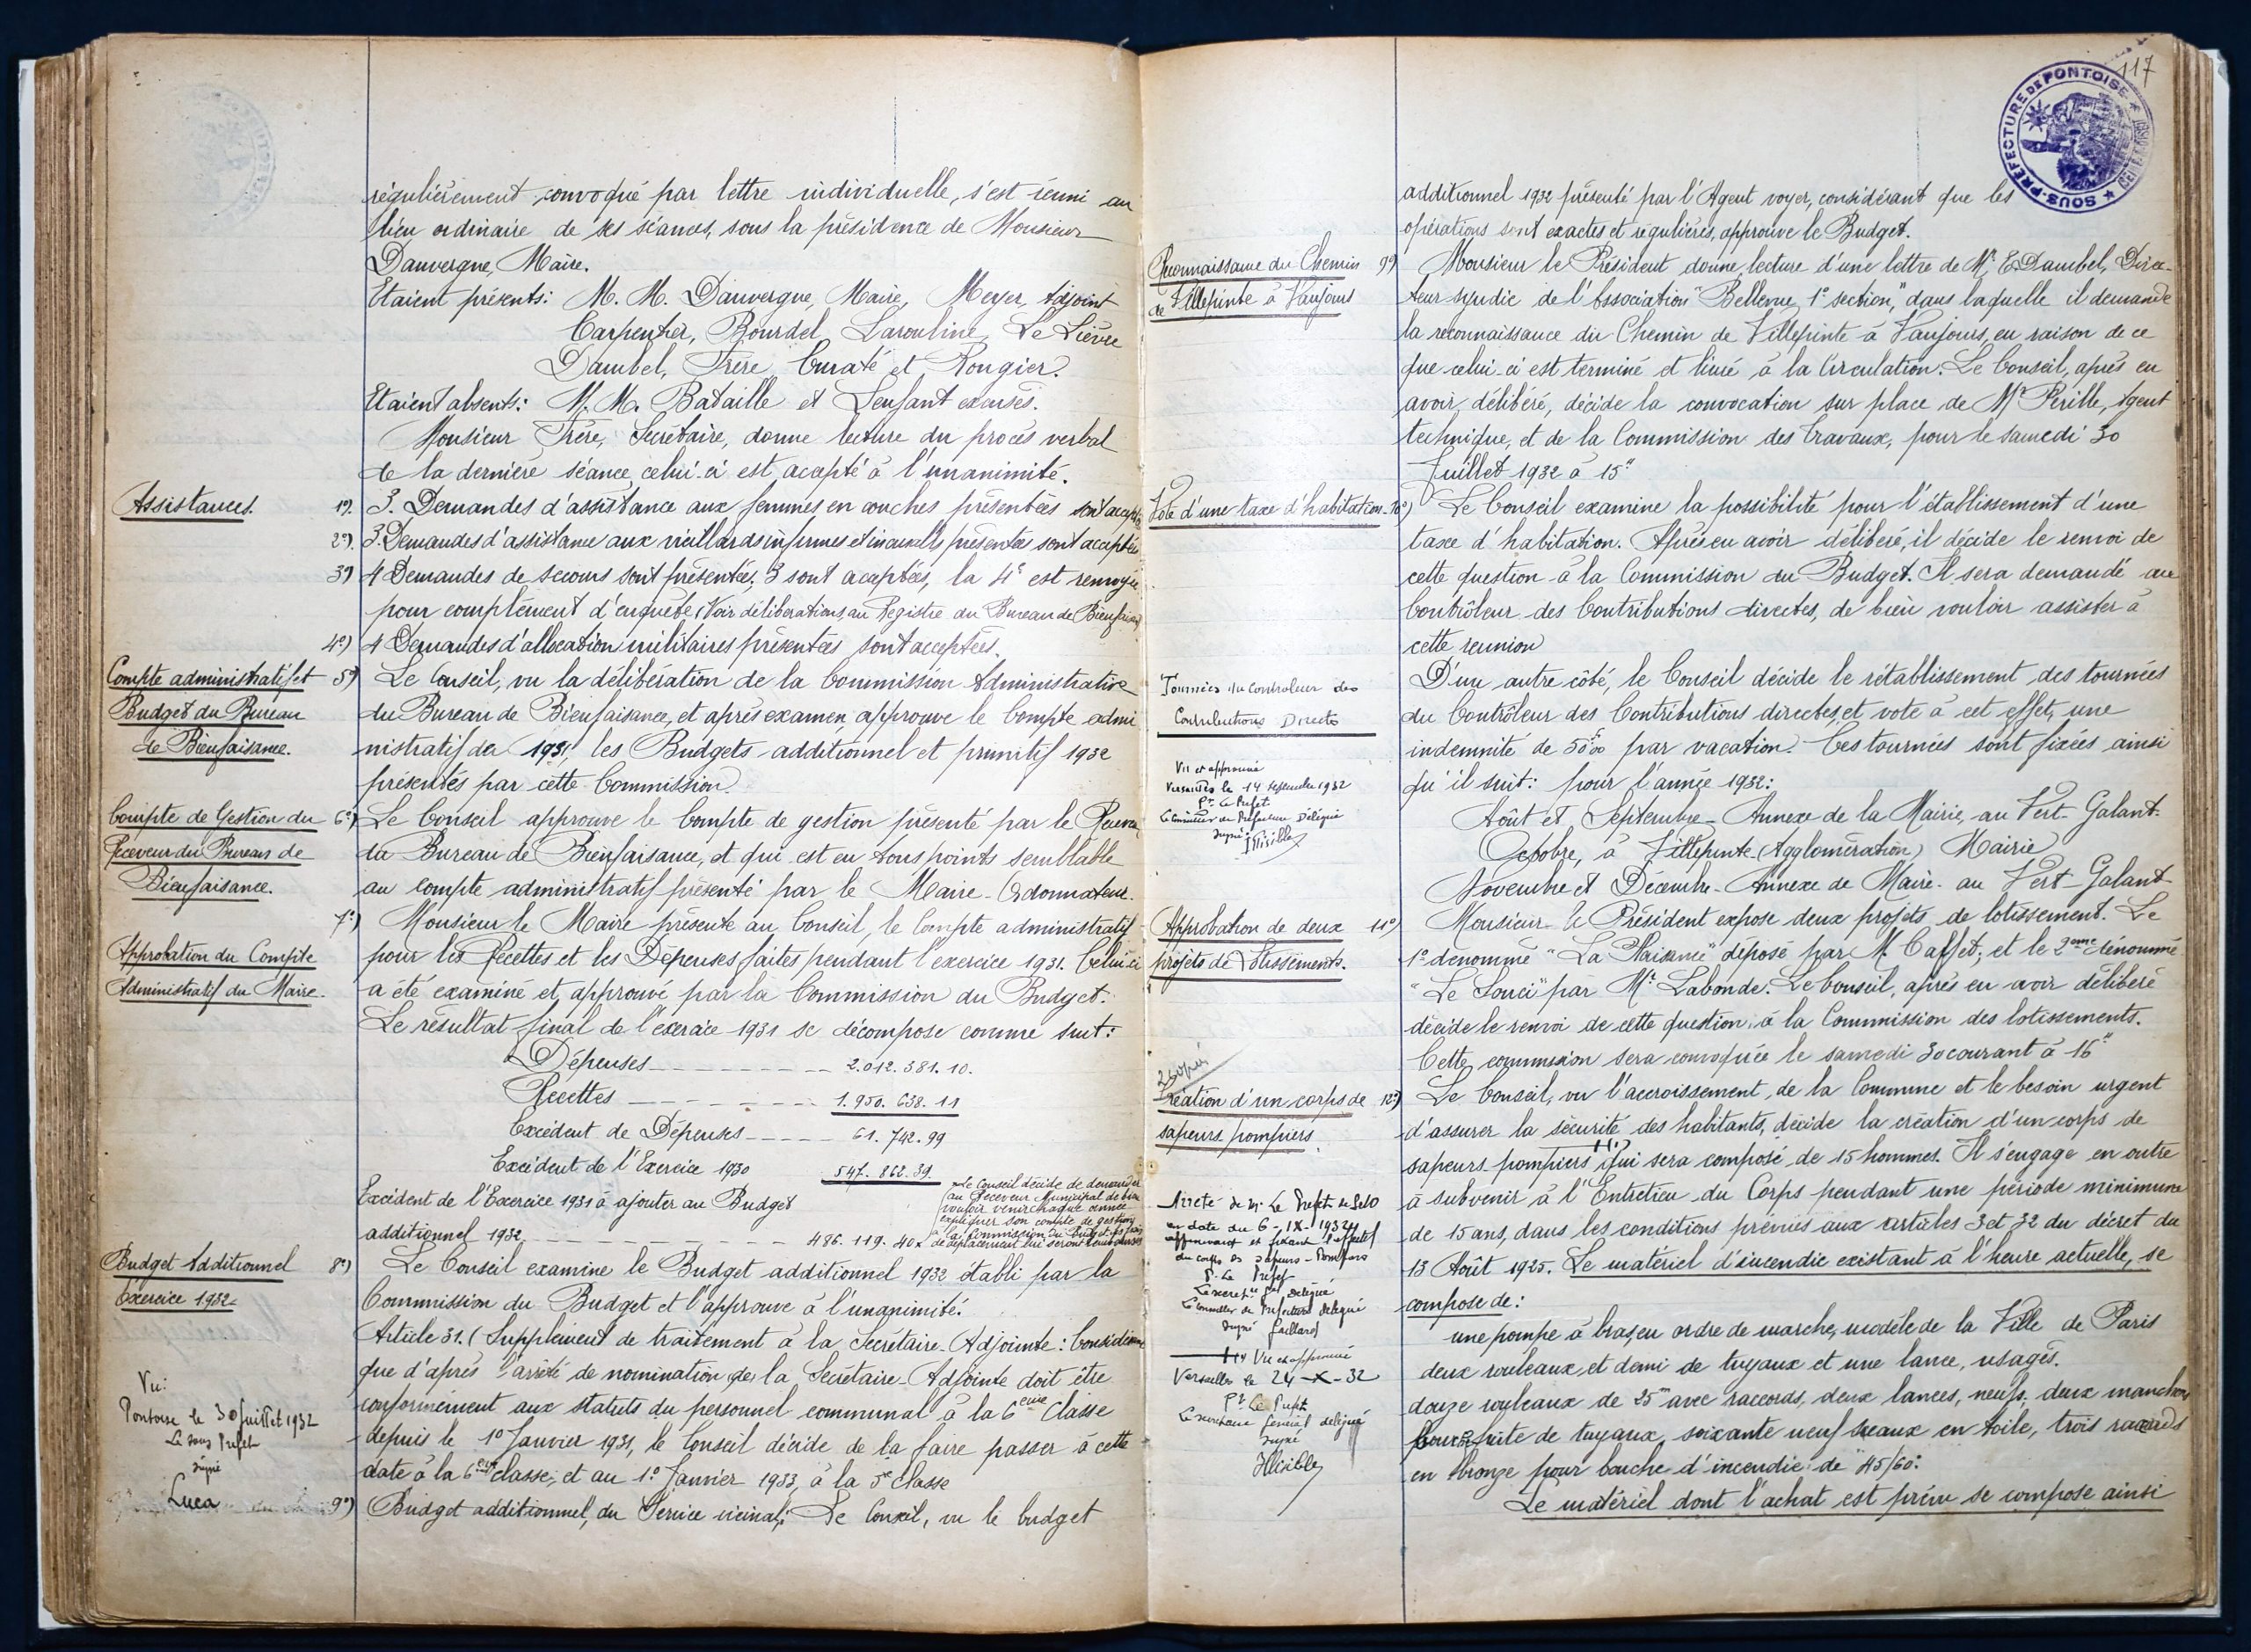 régulièrement convoqué par lettre individuelle, s'est réuni au
lieu ordinaire de ses séances, sous la présidence de Monsieur
Dauvergne, Maire.
Etaient présents: M. M. Dauvergne, Maire, Meyer, Adjoint
Carpentier, Bourdel, Larouline, Le Lièvre
Dambel, Frère, Curaté et Rougier.
Etaient absents: M. M. Bataille et Lenfant excusés.
Monsieur Frère, Secrétaire, donne lecture du procès verbal
de la dernière séance, celui-ci est accepté à l'unanimité.
Assistances.
1°). 3. Demandes d'assistance aux femmes en couches présentées sont acceptées
2°). 3. Demandes d'assistance aux vieillards infirmes et incurables présentées sont acceptées
3°) 4 Demandes de secours sont présentées, 3 sont acceptées, la 4e est renvoyée
pour complément d'enquête (Voir délibérations au Registre du Bureau de Bienfaisance)
4°) 4 Demandes d'allocation militaires présentées sont acceptées.
Compte administratif et
Budget du Bureau
de Bienfaisance.
5°) Le Conseil, vu la délibération de la Commission Administrative
du Bureau de Bienfaisance, et après examen, approuve le Compte admi
nistratif de 1931, les Budgets additionnel et primitif 1932
présentés par cette Commission.
Compte de Gestion du
Receveur du Bureau de
Bienfaisance.
6°) Le Conseil approuve le Compte de gestion présenté par le Receveur
du Bureau de Bienfaisance, et qui est en tous points semblable
au compte administratif présenté par le Maire-Ordonnateur.
Approbation du Compte
Administratif du Maire.
7°) Monsieur le Maire présente au Conseil, le Compte administratif
pour les Recettes et les Dépenses faites pendant l'exercice 1931. Celui-ci
a été examiné et approuvé par la Commission du Budget.
Le résultat final de l'exercice 1931 se décompose comme suit:
Dépenses 2.012.381.10.
Recettes 1.950.638.11
Excédent de Dépenses 61.742.99
Excédent de l'Exercice 1930 547.862.39.
Excédent de l'Exercice 1931 à ajouter au Budget
additionnel 1932 486.119.40 x
x Le Conseil décide de demander
au Receveur Municipal de bien
vouloir venir chaque année
expliquer son compte de gestion
à la Commission du Budget. Ses frais
de déplacement lui seront remboursés
Budget Additionnel
Exercice 1932.
8°) Le Conseil examine le Budget additionnel 1932 établi par la
Commission du Budget et l'approuve à l'unanimité.
Article 31. (Supplément de traitement à la Secrétaire-Adjointe: Considérant
que d'après l'arrêté de nomination, de la Secrétaire-Adjointe doit être
conformément aux statuts du personnel communal à la 6eme Classe
depuis le 1° Janvier 1931, le Conseil décide de la faire passer à cette
date à la 6eme classe, et au 1° Janvier 1933, à la 5e classe
Vu:
Pontoise le 30 Juillet 1932
Le Sous Préfet
signé
Luca
9°) Budget additionnel du Service vicinal; Le Conseil, vu le budget
117
SOUS-PRÉFECTURE DE PONTOISE
additionnel 1932 présenté par l'Agent voyer, considérant que les
opérations sont exactes et régulières, approuve le Budget.
Reconnaissance du Chemin
de Villepinte à Vaujours
9°) Monsieur le Président donne lecture d'une lettre de Mr. E. Dambel, Direc-
teur syndic de l'Association "Bellevue, 1° section," dans laquelle il demande
la reconnaissance du Chemin de Villepinte à Vaujours, en raison de ce
que celui-ci est terminé et livré à la Circulation. Le Conseil, après en
avoir délibéré, décide la convocation sur place de Mr Pérille, Agent
technique, et de la Commission des Travaux, pour le samedi 30
Juillet 1932 à 15h
Vote d'une taxe d'habitation
10°) Le Conseil examine la possibilité pour l'établissement d'une
taxe d'habitation. Après en avoir délibéré, il décide le renvoi de
cette question à la Commission du Budget. Il sera demandé au
Contrôleur des Contributions directes, de bien vouloir assister à
cette reunion
Tournées du Controleur des
Contributions Directes
D'un autre côté, le Conseil décide le rétablissement des tournées
du Contrôleur des Contributions directes, et vote à cet effet, une
indemnité de 50f00 par vacation. Ces tournées sont fixées ainsi
qu'il suit: pour l'année 1932:
Vu et approuvé
Versailles le 14 Septembre 1932
Pr. Le Préfet
Le Conseiller de Préfecture Délégué
signé: Illisible
Août et Septembre - Annexe de la Mairie, au Vert-Galant.
Octobre, à Villepinte (Agglomération) Mairie
Novembre et Décembre - Annexe de Mairie au Vert-Galant
Approbation de deux
projets de Lotissements.
11°) Monsieur le Président expose deux projets de lotissement. Le
1° dénommé "La Plaisance" déposé par M. Caffet; et le 2eme dénommé
"Le Souci" par Mr. Labonde. Le Conseil, après en avoir délibéré
décide le renvoi de cette question à la Commission des lotissements.
Cette commission sera convoquée le samedi 30 courant à 16h
Création d'un corps de
sapeurs pompiers.
12°) Le Conseil, vu l'accroissement, de la Commune et le besoin urgent
d'assurer la sécurité des habitants, décide la création d'un corps de
sapeurs-pompiers qui sera composé de 15 hommes. Il s'engage en outre
à subvenir à l'Entretien du Corps pendant une période minimum
de 15 ans, dans les conditions prévues aux articles 3 et 32 du décret du
13 Août 1925. Le matériel d'incendie existant à l'heure actuelle, se
compose de:
Arreté de Mr. Le Prefet de S et O
en date du 6-IX-1932
approuvant et fixant l'effectif
du corps des Sapeurs-Pompiers
P. Le Préfet
Le Secret. Gal Délégué
Le Conseiller de Préfecture délégué
signé Gaillard
Vu et approuvé
Versailles le 24-X-32
Pr Le Prefet
Le Secretaire General délégué
signé
Illisible
une pompe à bras, en ordre de marche, modèle de la Ville de Paris
deux rouleaux et demi de tuyaux et une lance, usagés.
douze rouleaux de 25m avec raccords, deux lances, neufs, deux manchons
pour fuite de tuyaux, soixante neuf sceaux en toile, trois raccords
en bronze pour bouche d'incendie de 45/60.
Le matériel dont l'achat est prévu se compose ainsi